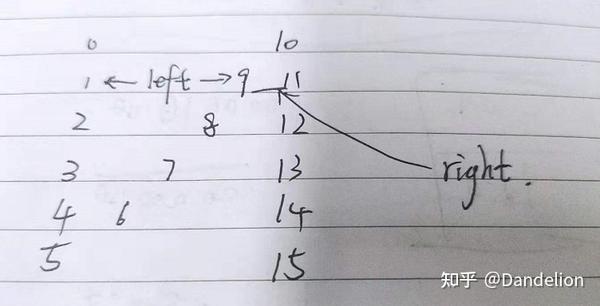 0 10
1 ← left → 9 11
2 8 12
3 7 13
right.
4 6 14
5 15
知乎 @Dandelion